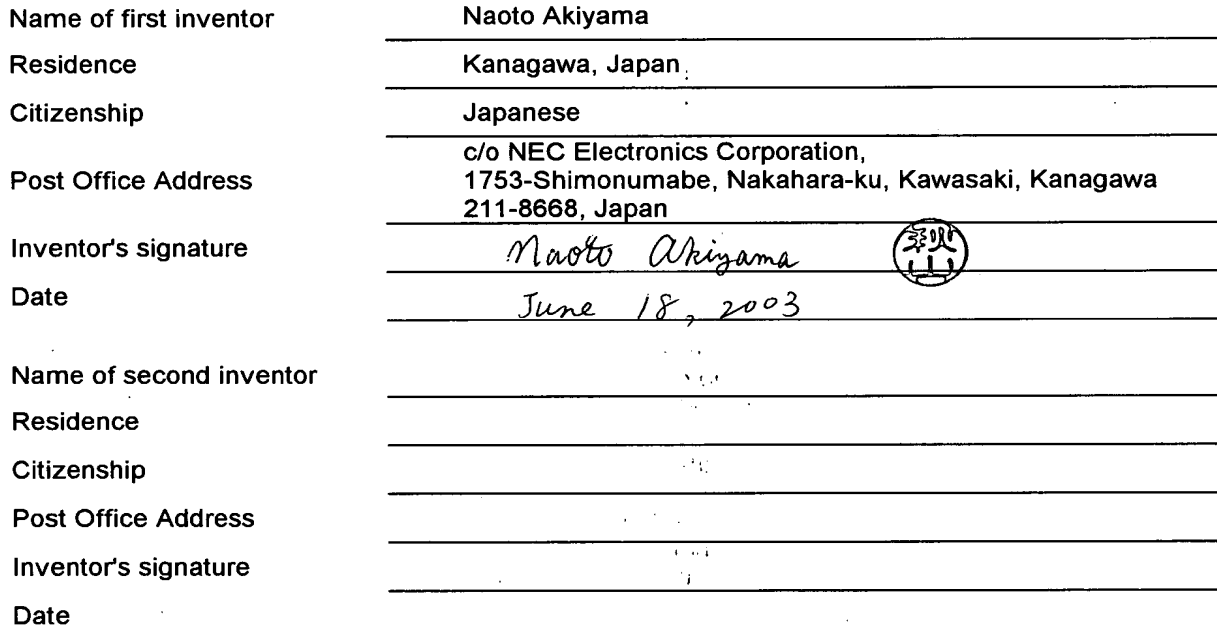 Name of first inventor Naoto Akiyama
Residence Kanagawa, Japan
Citizenship Japanese
c/o NEC Electronics Corporation,
Post Office Address 1753-Shimonumabe, Nakahara-ku, Kawasaki, Kanagawa
211-8668, Japan
Inventor's signature Naoto Akiyama 秋山
Date June 18, 2003
Name of second inventor
Residence
Citizenship
Post Office Address
Inventor's signature
Date